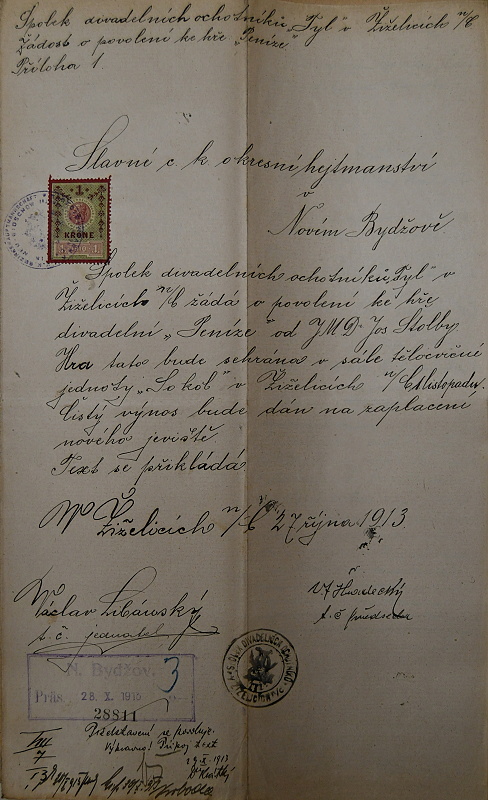 Spolek divadelních ochotníků „Tyl" v Žiželicích n/C
Žádost o povolení ke hře „Peníze"
Příloha 1
Slavné c. k okresní hejtmanství
v
Novém Bydžově
1
KRONE
Spolek divadelních ochotníků „Tyl" v
Žiželicích n/C žádá o povolení ke hře
divadelní „Peníze" od JMDr Jos Štolby.
Hra tato bude sehrána v sále tělocvičné
jednoty „Sokol" v Žiželicích n/C 1 listopadu.
Čistý výnos bude dán na zaplacení
nového jeviště.
Text se přikládá.
V Žiželicích n/C 27 října 1913.
Václav Libánský
t. č. jednatel
t. č. předseda
N. Bydžov.
3
Präs. 28. X. 1913
28811
Představení se povoluje.
Vpravno!
VIII
7